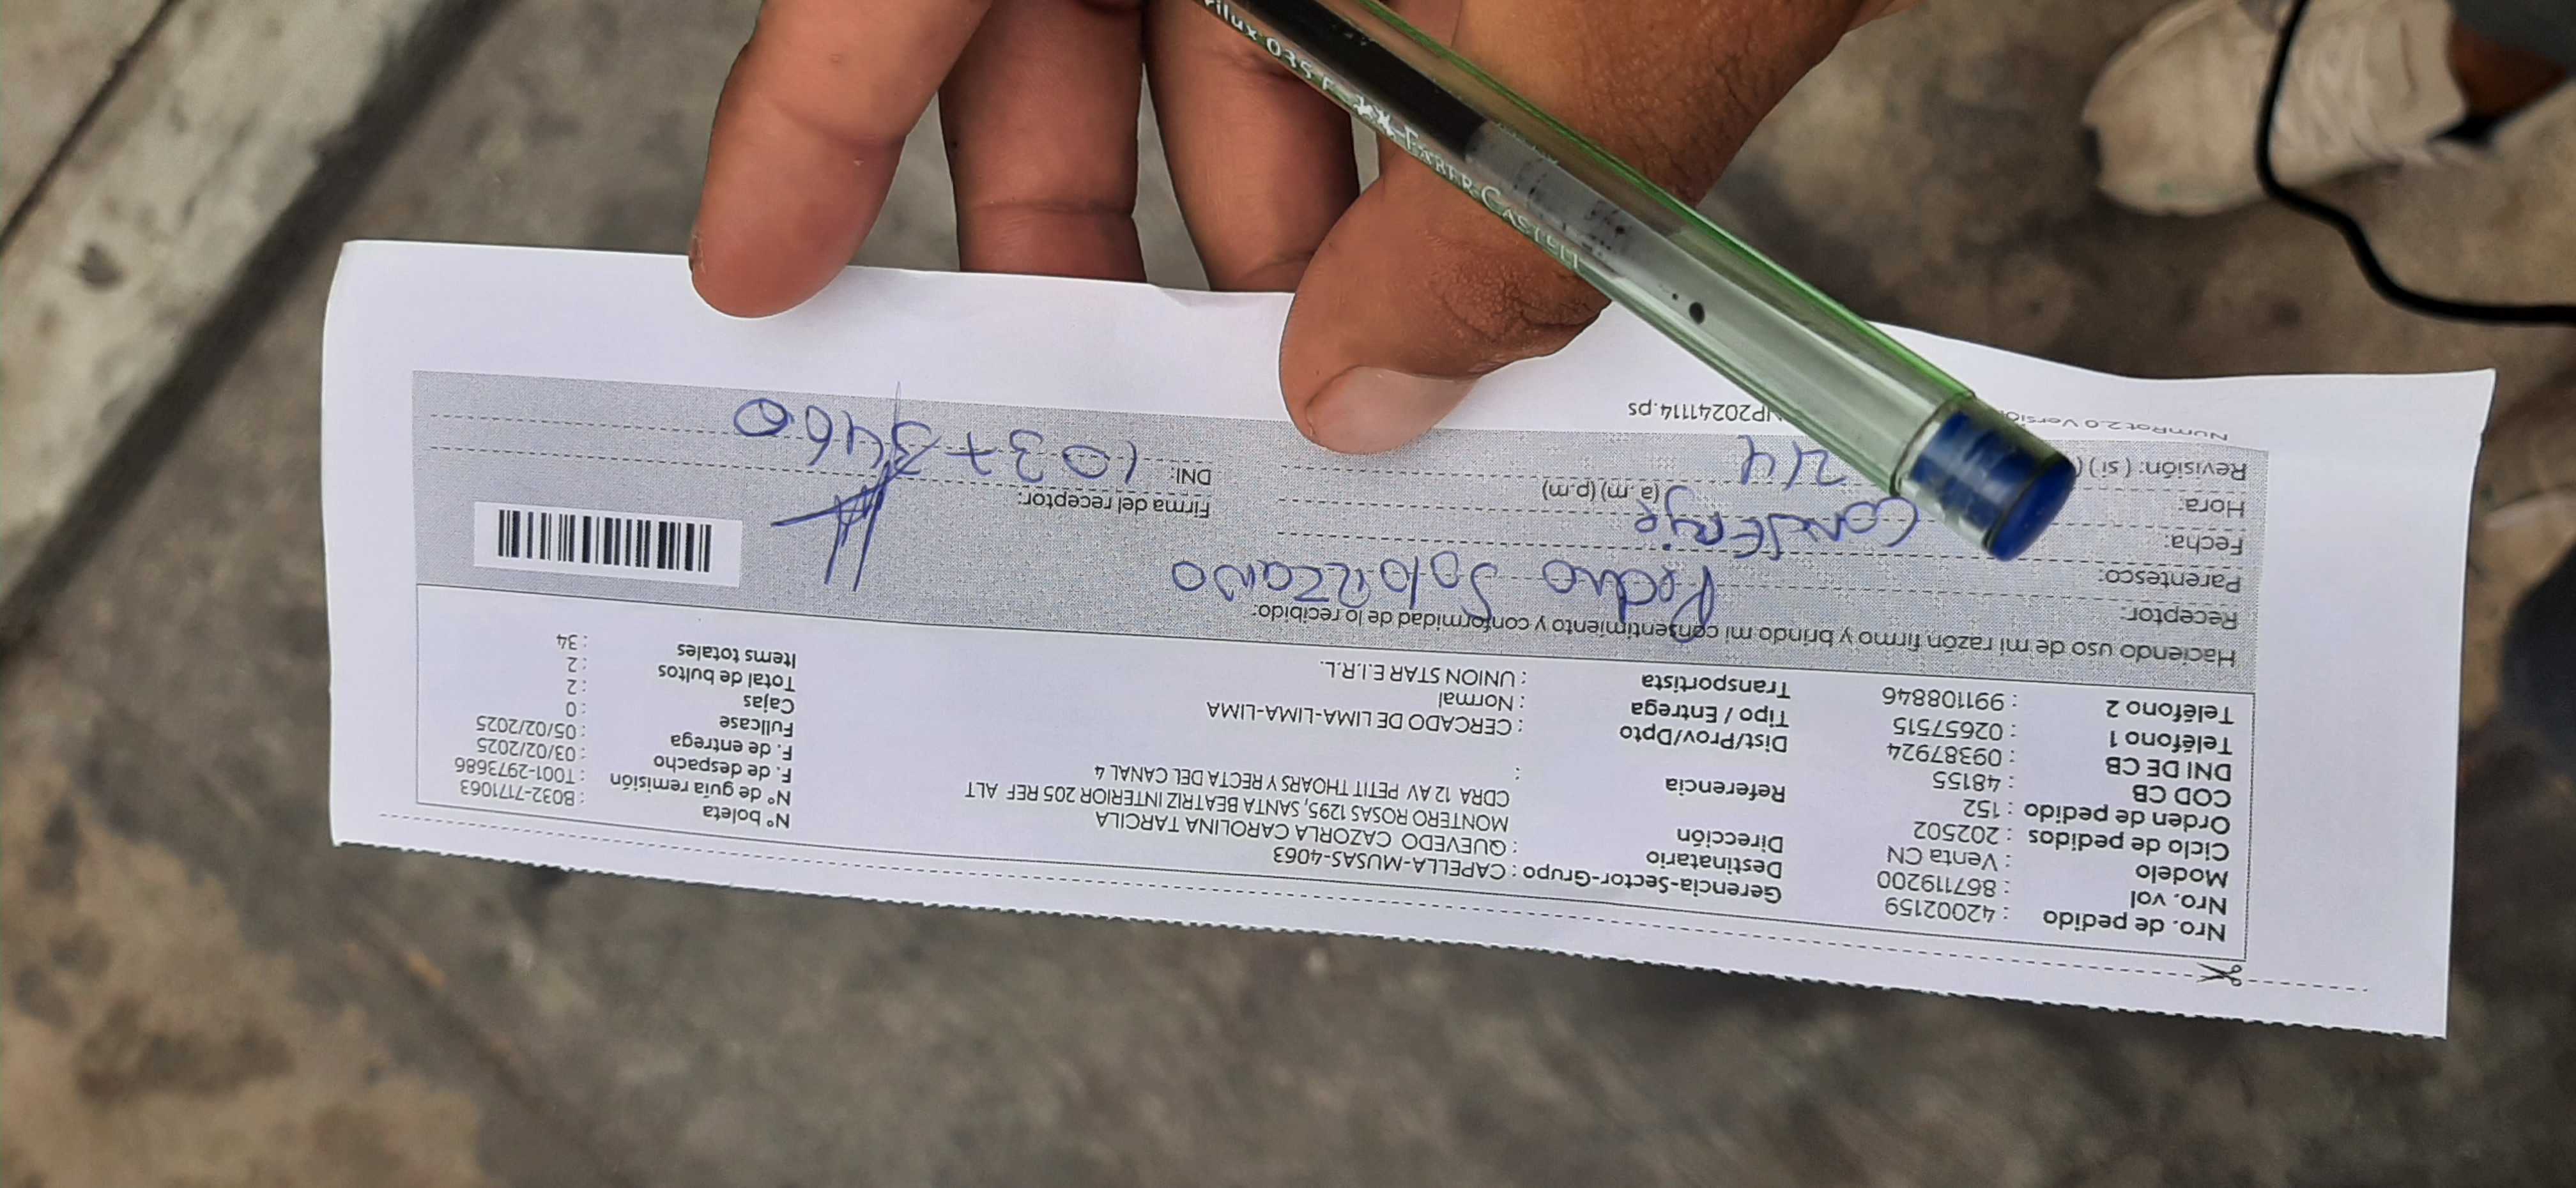 Nro. de pedido : 42002159
Nro. vol : 867119200
Modelo : Venta CN
Ciclo de pedidos : 202502
Orden de pedido : 152
COD CB : 48155
DNI DE CB : 09387924
Teléfono 1 : 02657515
Teléfono 2 : 991108846
Gerencia-Sector-Grupo : CAPELLA-MUSAS-4063
Destinatario : QUEVEDO CAZORLA CAROLINA TARCILA
Dirección MONTERO ROSAS 1295, SANTA BEATRIZ INTERIOR 205 REF ALT
CDRA 12 AV PETIT THOARS Y RECTA DEL CANAL 4
Referencia :
Dist/Prov/Dpto : CERCADO DE LIMA-LIMA-LIMA
Tipo / Entrega : Normal
Transportista : UNION STAR E.I.R.L.
Nº boleta : B032-7171063
Nº de guía remisión : T001-2973686
F. de despacho : 03/02/2025
F. de entrega : 05/02/2025
Fullcase : 0
Cajas : 2
Total de bultos : 2
Items totales : 34
Haciendo uso de mi razón firmo y brindo mi consentimiento y conformidad de lo recibido:
Receptor: Pedro Solorzano
Parentesco: Conserje
Fecha:
Hora: 244 (a.m) (p.m)
Revisión: ( si ) (
Firma del receptor:
DNI: 10373460
NumRot 2.0 Versió
NP20241114.ps
rilux 035 F FABER-CASTELL